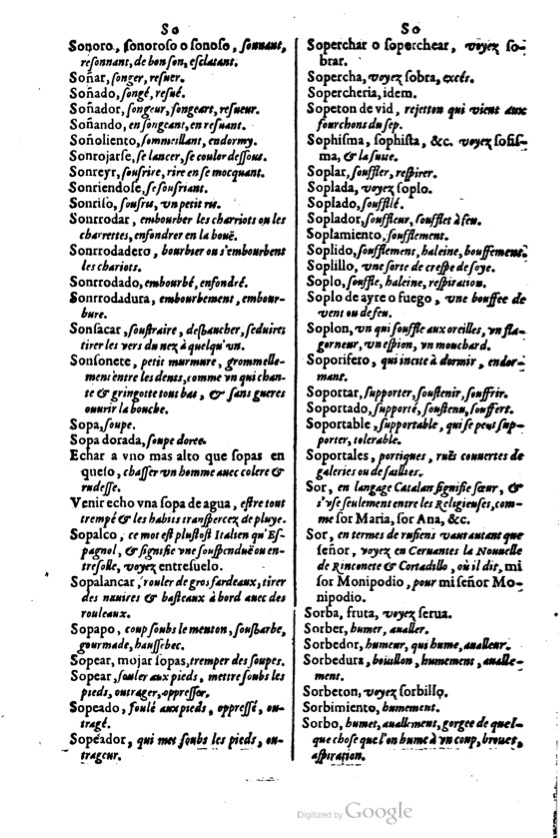 So
Sonoro, sonoroso o sonoso, sonnant,
resonnant, de bon son, esclatant.
Soñar, songer, resuer.
Soñado, songé, resué.
Soñador, songeur, songeart, resueur.
Soñando, en songeant, en resuant.
Soñoliento, sommeillant, endormy.
Sonrojarse, se lancer, se couler dessous.
Sonreyr, sousrire, rire en se mocquant.
Sonriendose, se sousriant.
Sonriso, sousris, vn petit ris.
Sonrrodar, embourber les charriots ou les
charrettes, enfondrer en la bouë.
Sonrrodadero, bourbier ou s'embourbent
les chariots.
Sonrrodado, embourbé, enfondré.
Sonrrodadura, embourbement, embour-
bure.
Sonsacar, soustraire, desbaucher, seduire,
tirer les vers du nez à quelqu'vn.
Sonsonete, petit murmure, grommelle-
ment entre les dents, comme vn qui chan-
te & gringotte tout bas, & sans gueres
ouurir la bouche.
Sopa, soupe.
Sopa dorada, soupe doree.
Echar a vno mas alto que sopas en
queso, chasser vn homme auec colere &
rudesse.
Venir echo vna sopa de agua, estre tout
trempé & les habits transpercez de pluye.
Sopalco, ce mot est plustost Italien qu'Es-
pagnol, & signifie vne souspenduë ou en-
tresolle, voyez entresuelo.
Sopalancar, rouler de gros fardeaux, tirer
des nauires & basteaux à bord auec des
rouleaux.
Sopapo, coup soubs le menton, soubarbe,
gourmade, haussebec.
Sopear, mojar sopas, tremper des soupes.
Sopear, fouler aux pieds, mettre soubs les
pieds, outrager, oppresser.
Sopeado, foulé aux pieds, oppressé, ou-
tragé.
Sopeador, qui met soubs les pieds, ou-
trageur.
So
Soperchar o soperchear, voyez so-
brar.
Sopercha, voyez sobra, excés.
Sopercheria, idem.
Sopeton de vid, rejetton qui vient aux
fourchons du sep.
Sophisma, sophista, &c. voyez sofis-
ma, & la suite.
Soplar, souffler, respirer.
Soplada, voyez soplo.
Soplado, soufflé.
Soplador, souffleur, soufflet à feu.
Soplamiento, soufflement.
Soplido, soufflement, haleine, bouffement.
Soplillo, vne sorte de crespe de soye.
Soplo, souffle, haleine, respiration.
Soplo de ayre o fuego, vne bouffee de
vent ou de feu.
Soplon, vn qui souffle aux oreilles, vn fla-
gorneur, vn espion, vn mouchard.
Soporifero, qui incite à dormir, endor-
mant.
Soportar, supporter, soustenir, souffrir.
Soportado, supporté, soustenu, souffert.
Soportable, supportable, qui se peut sup-
porter, tolerable.
Soportales, portiques, ruës couuertes de
galeries ou de saillies.
Sor, en langage Catalan signifie sœur, &
s'vse seulement entre les Religieuses, com-
me sor Maria, sor Ana, &c.
Sor, en termes de rufiens vaut autant que
señor, voyez en Ceruantes la Nouuelle
de Rinconete & Cortadillo, où il dit, mi
sor Monipodio, pour mi señor Mo-
nipodio.
Sorba, fruta, voyez serua.
Sorber, humer, aualler.
Sorbedor, humeur, qui hume, aualleur.
Sorbedura, boüillon, humement, aualle-
ment.
Sorbeton, voyez sorbillo.
Sorbimiento, humement.
Sorbo, humet, auallement, gorgee de quel-
que chose que l'on hume à vn coup, brouet,
aspiration.
Digitized by Google